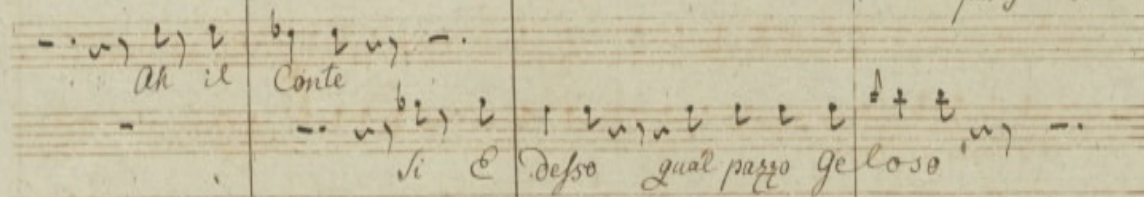 Ah il Conte
Si E desso qual pazzo Geloso